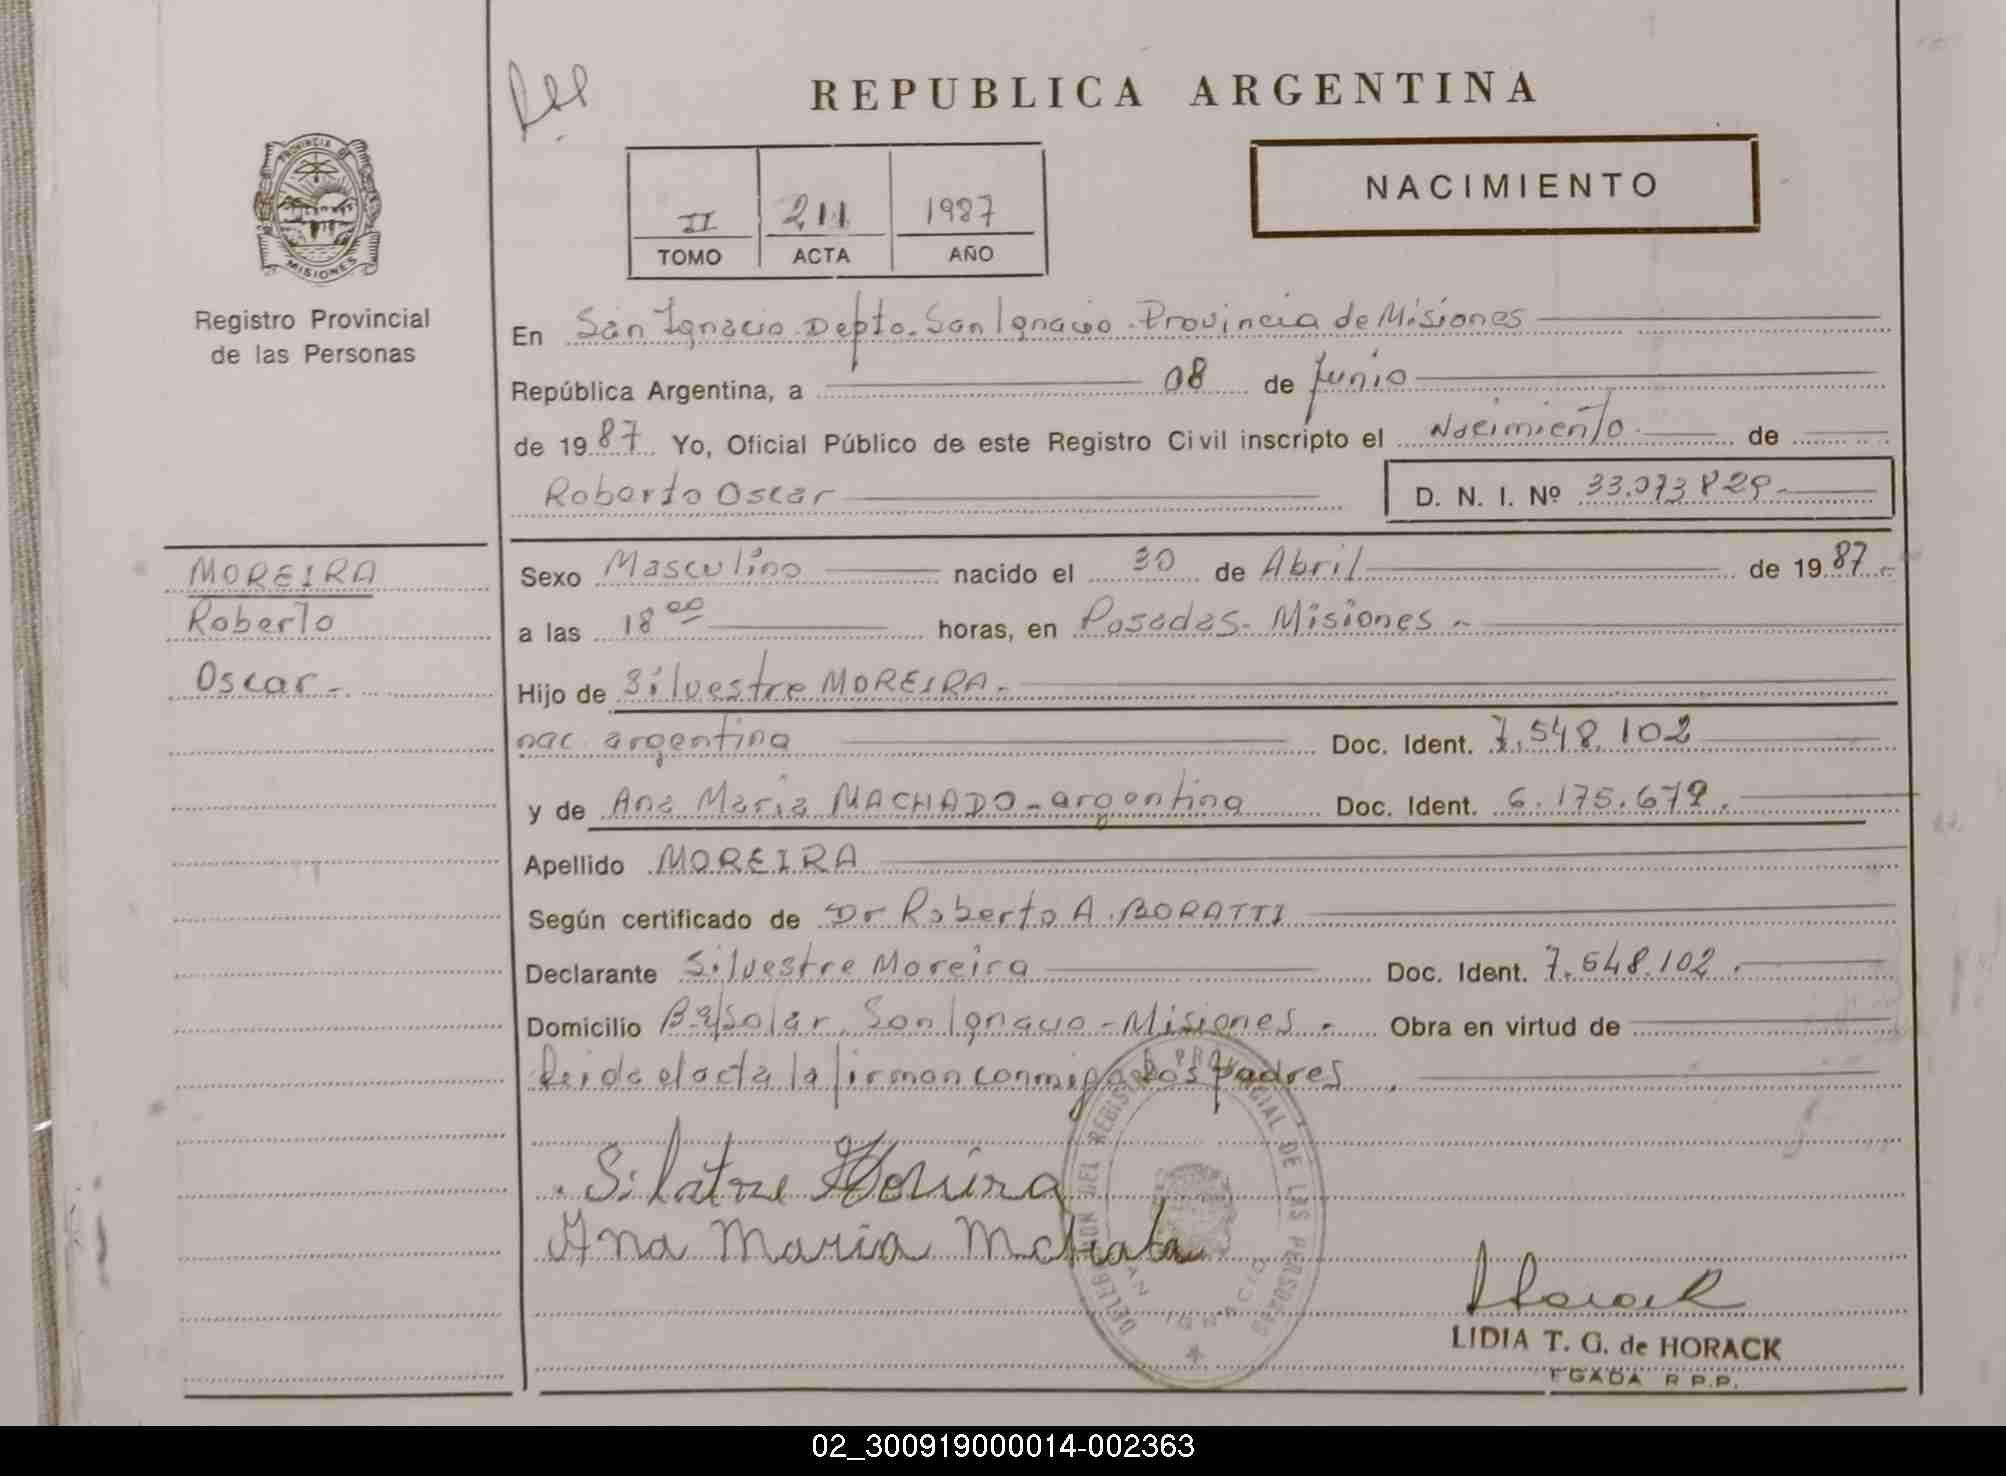 REPUBLICA ARGENTINA
PROVINCIA DE
MISIONES
Registro Provincial
de las Personas
II 211 1987
TOMO ACTA AÑO
NACIMIENTO
En San Ignacio Depto. San Ignacio. Provincia de Misiones
República Argentina, a 08 de Junio
de 1987 Yo, Oficial Público de este Registro Civil inscripto el Nacimiento de
Roberto Oscar D. N. I. Nº 33.073.829
MOREIRA
Roberto
Oscar
Sexo Masculino nacido el 30 de Abril de 1987
a las 18 00 horas, en Posadas - Misiones
Hijo de Silvestre MOREIRA
nac. argentina Doc. Ident. 7.548.102
y de Ana Maria MACHADO - argentina Doc. Ident. 6.175.679
Apellido MOREIRA
Según certificado de Dr Roberto A. BORATTI
Declarante Silvestre Moreira Doc. Ident. 7.548.102
Domicilio San Ignacio - Misiones Obra en virtud de
Leida el acta la firman conmigo los padres
Ana Maria
DELEGACION DEL REGISTRO PROVINCIAL DE LAS PERSONAS
SAN IGNACIO
Horack
LIDIA T. G. de HORACK
R P.P.
02_300919000014-002363